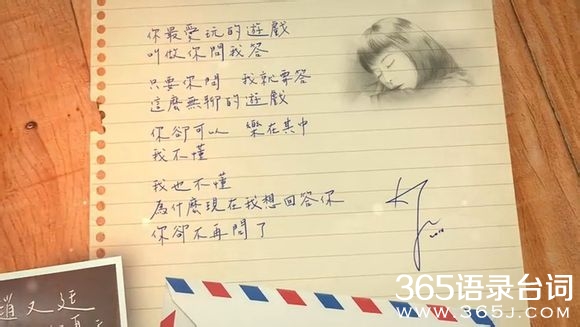 你最愛玩的遊戲
叫做你問我答
只要你問 我就要答
這麼無聊的遊戲
你卻可以 樂在其中
我不懂
我也不懂
為什麼現在我想回答你
你卻不再問了
趙又廷
365语录台词
www.365yj.com